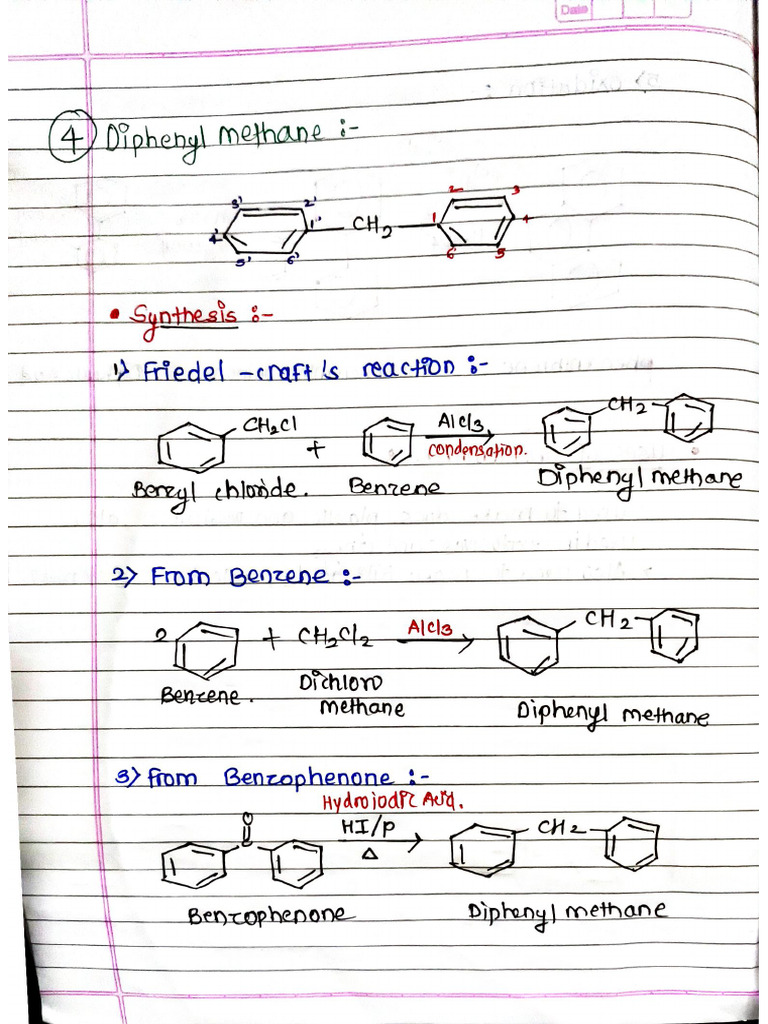 Date
4 Diphenyl methane :-
3' 2' 2 3
4' 1' CH2 1 4
5' 6' 6 5
• Synthesis :-
1) Friedel -craft's reaction :-
CH2Cl + AlCl3 CH2
condensation.
Benzyl chloride. Benzene Diphenyl methane
2) From Benzene :-
2 + CH2Cl2 AlCl3 CH2
Benzene. Dichloro methane Diphenyl methane
3) from Benzophenone :-
Hydroiodic Acid.
O
C HI/P CH2
Δ
Benzophenone Diphenyl methane